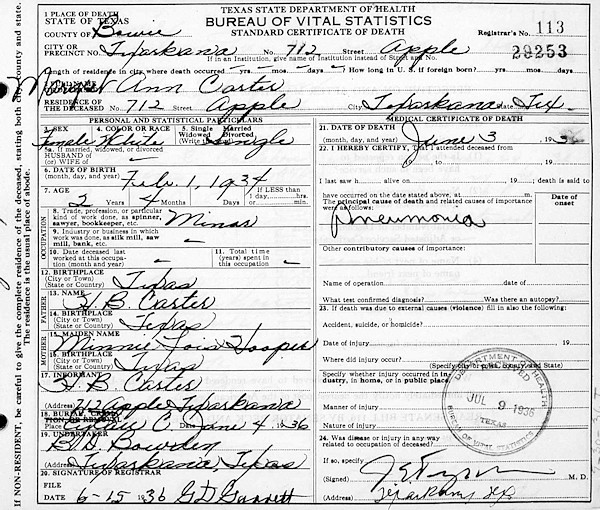 TEXAS STATE DEPARTMENT OF HEALTH
BUREAU OF VITAL STATISTICS
STANDARD CERTIFICATE OF DEATH
1 PLACE OF DEATH
STATE OF TEXAS
COUNTY OF Bowie
Registrar's No. 113
29253
CITY OR PRECINCT NO. Texarkana No. 712 Street Apple
If in an Institution, give name of Institution instead of Street and No.
Length of residence in city where death occurred yrs. mos. days. How long in U. S. if foreign born? yrs. mos. days
Ann Carter
RESIDENCE OF THE DECEASED No. 712 Street Apple City Texarkana State Tex
PERSONAL AND STATISTICAL PARTICULARS
3. SEX 4. COLOR OR RACE 5. Single Married Widowed Divorced (Write the word)
Female White Single
5a. If married, widowed, or divorced
HUSBAND OF
(or) WIFE OF
6. DATE OF BIRTH
(month, day, and year) Feb. 1, 1934
7. AGE 2 Years 4 Months Days If LESS than 1 day, hrs. min.
OCCUPATION
8. Trade, profession, or particular kind of work done, as spinner, sawyer, bookkeeper, etc. Minor
9. Industry or business in which work was done, as silk mill, saw mill, bank, etc. -
10. Date deceased last worked at this occupation (month and year) -
11. Total time (years) spent in this occupation -
12. BIRTHPLACE
(City or Town)
(State or Country) Texas
FATHER
13. NAME H. B. Carter
14. BIRTHPLACE
(City or Town)
(State or Country) Texas
MOTHER
15. MAIDEN NAME Minnie Lois Hooper
16. BIRTHPLACE
(City or Town)
(State or Country) Texas
17. INFORMANT H. B. Carter
(Address) 712 Apple Texarkana
18. BURIAL June 4 1936
19. UNDERTAKER Bowden
(Address) Texarkana, Texas
20. SIGNATURE OF REGISTRAR
FILE DATE 6-15 1936 G D Garrett
MEDICAL CERTIFICATE OF DEATH
21. DATE OF DEATH
(month, day, and year) June 3, 193
22. I HEREBY CERTIFY, That I attended deceased from
, 19 to , 19
I last saw h alive on , 19 ; death is said to
have occurred on the date stated above, at m.
The principal cause of death and related causes of importance were as follows: Date of onset
Pneumonia
Other contributory causes of importance:
Name of operation date of
What test confirmed diagnosis? Was there an autopsy?
23. If death was due to external causes (violence) fill in also the following:
Accident, suicide, or homicide?
Date of injury , 19
Where did injury occur?
(Specify city or county and State)
Specify whether injury occurred in industry, in home, or in public place
Manner of injury
Nature of injury
24. Was disease or injury in any way related to occupation of deceased?
If so, specify
(Signed) M. D.
(Address) Texarkana Tex
DEPARTMENT OF HEALTH
JUL 9 1936
TEXAS
BUREAU OF VITAL STATISTICS
IF NON-RESIDENT, be careful to give the complete residence of the deceased, stating both city, county and state.
The residence is the usual place of abode.